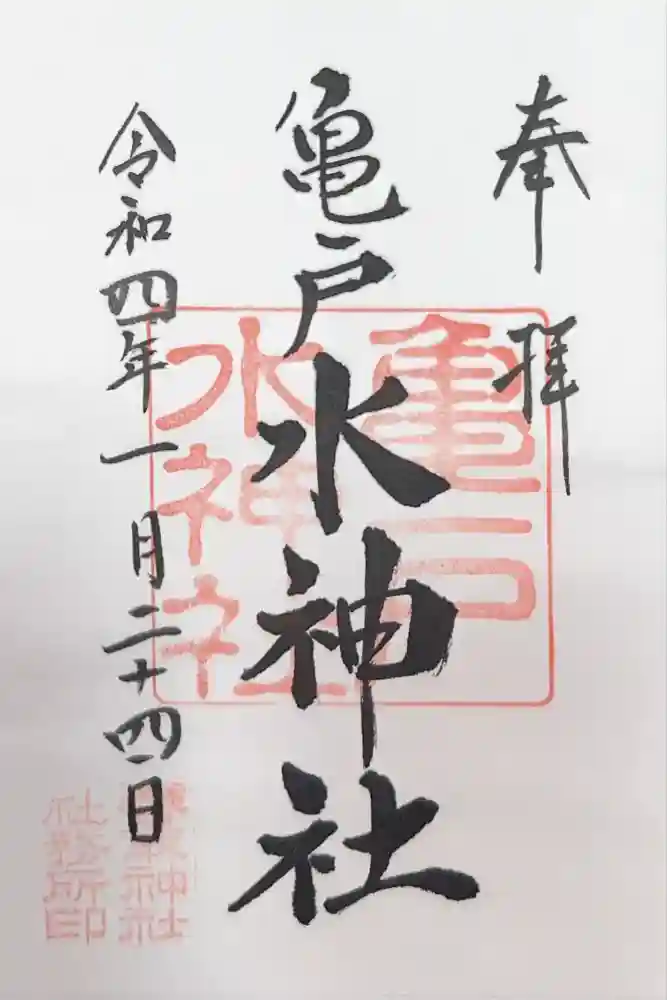 奉拝
亀戸水神社
令和四年一月二十四日
亀戸
水神社
社務所印